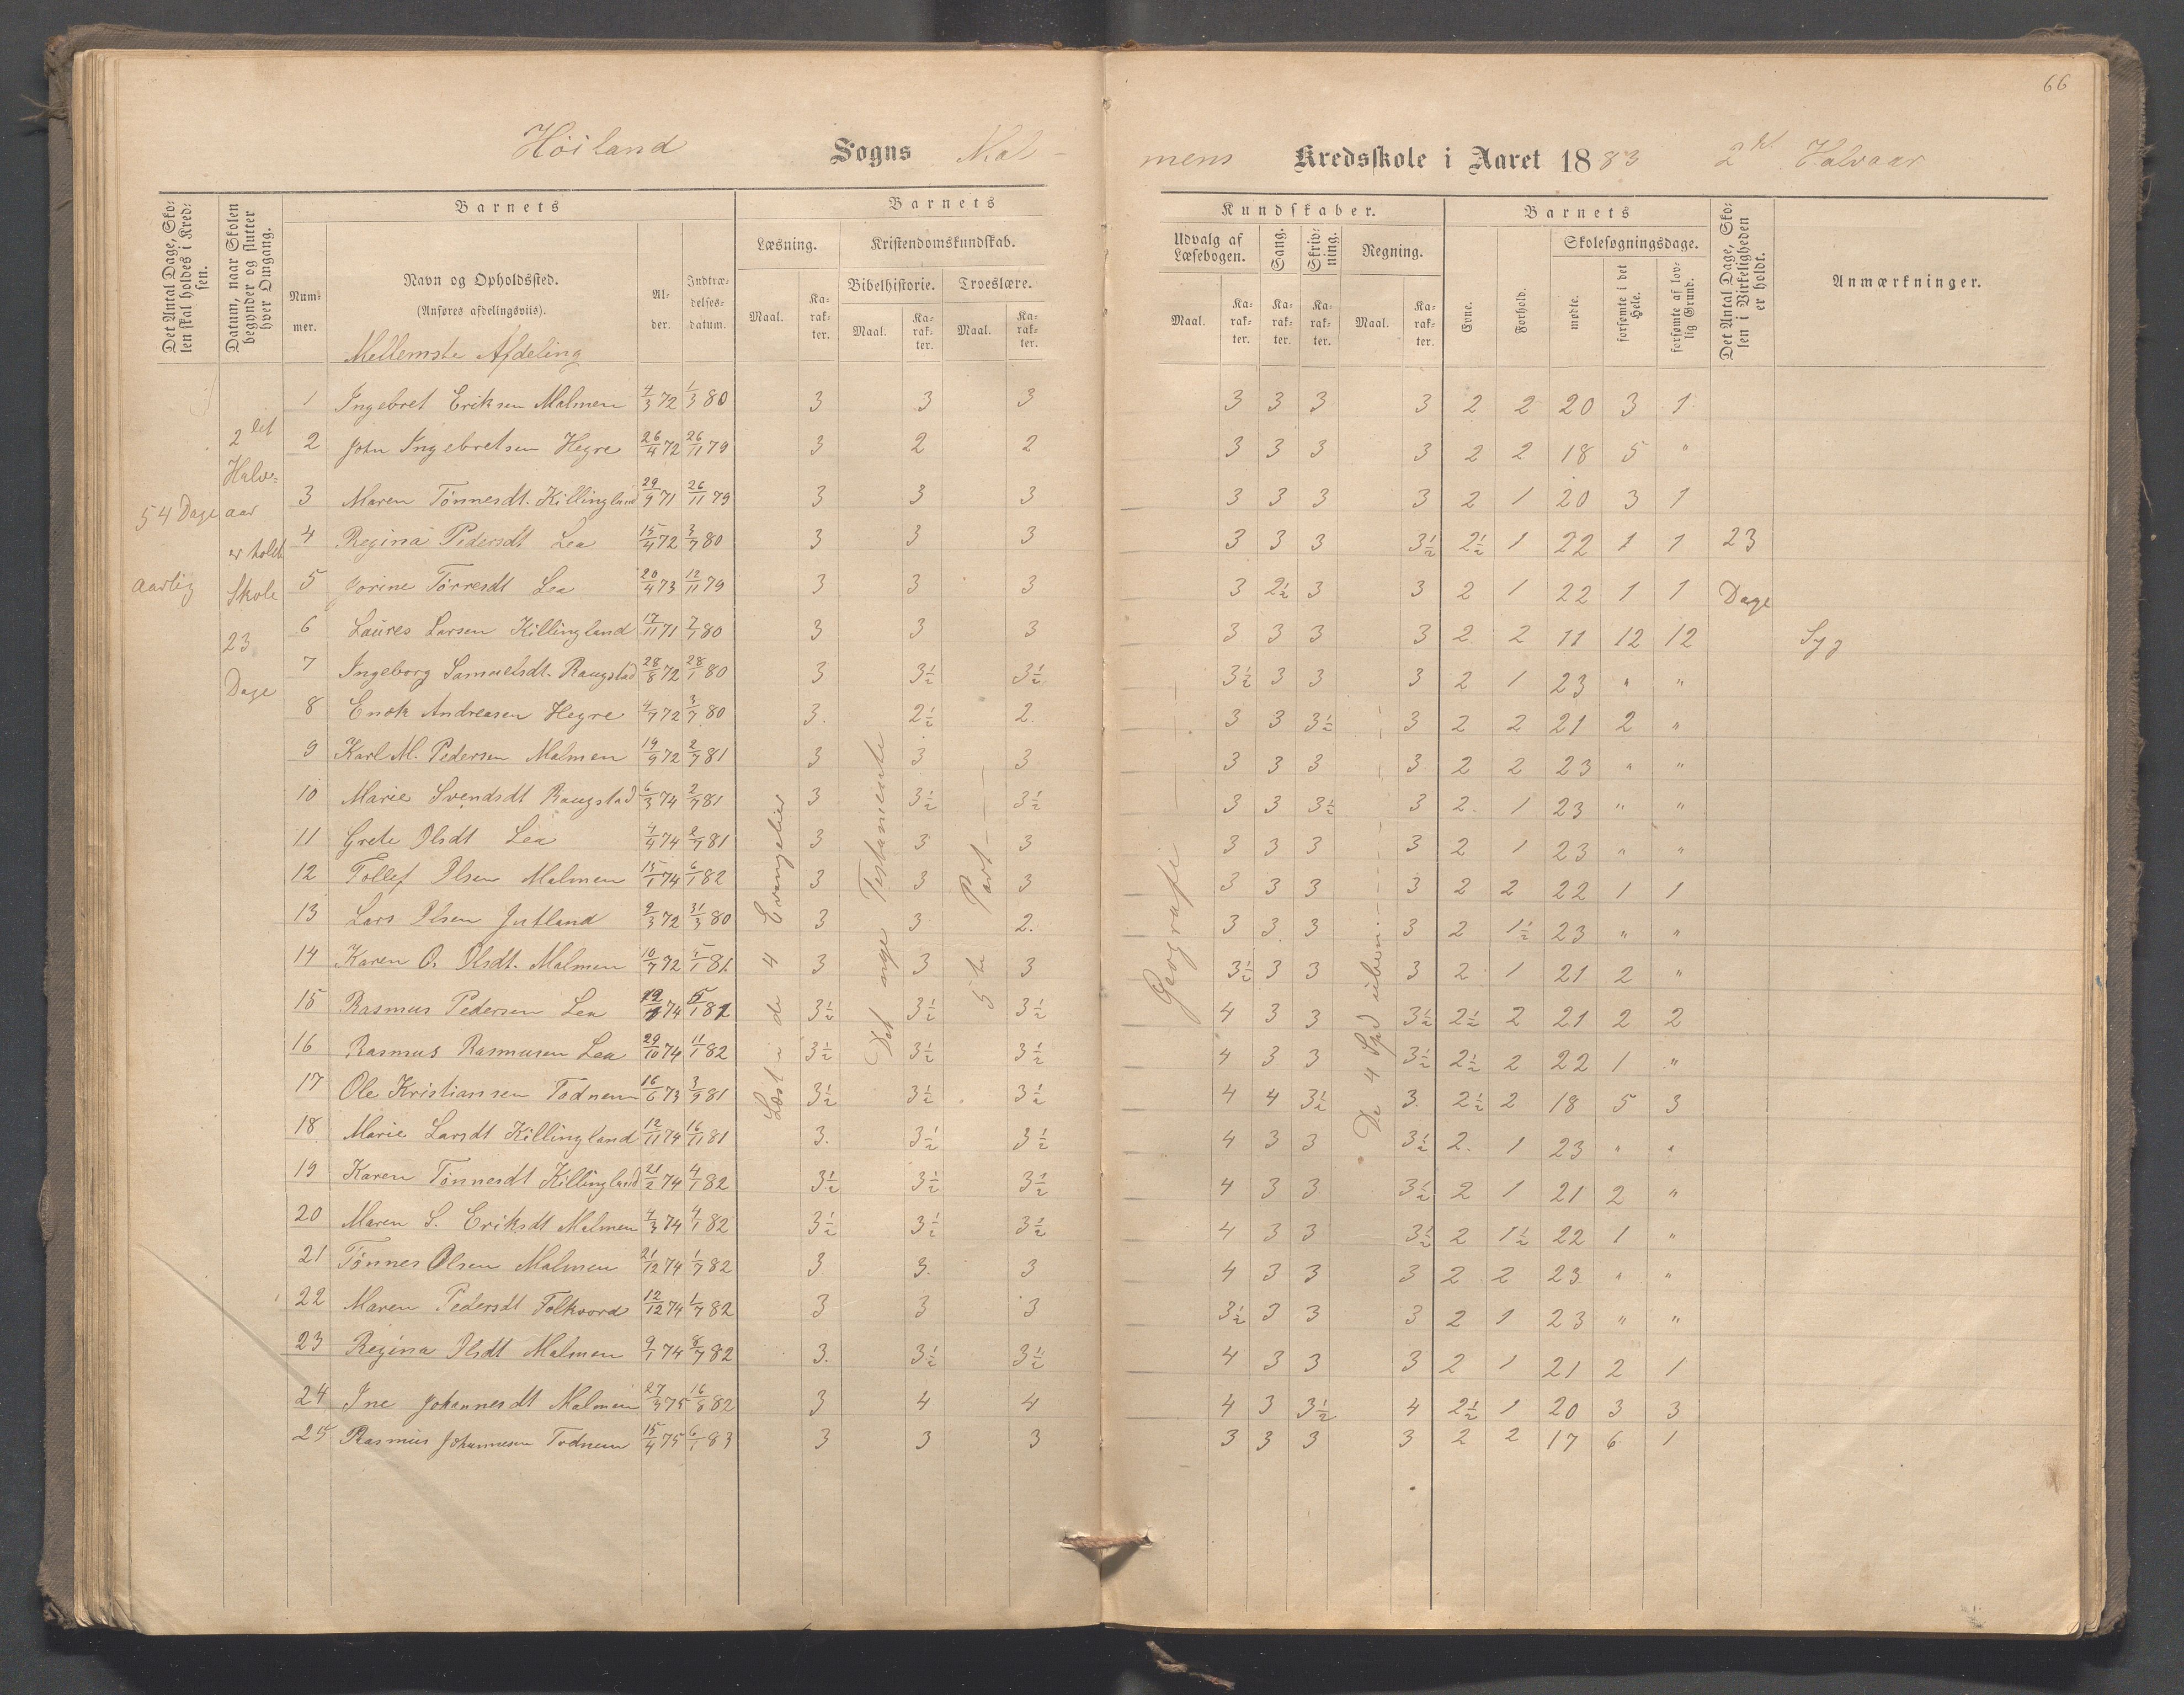 66
Höiland Sogns Mal-
mens Kredsskole i Aaret 1883 2det Halvaar
Det Antal Dage, Skolen skal holdes i Kredsen.
Datum, naar Skolen begynder og slutter hver Omgang.
Barnets
Nummer.
Navn og Opholdssted.
(Anføres afdelingsviis).
Alder.
Indtrædelsesdatum.
Barnets
Læsning.
Maal.
Karakter.
Kristendomskundskab.
Bibelhistorie.
Maal.
Karakter.
Troeslære.
Maal.
Karakter.
Kundskaber.
Udvalg af Læsebogen.
Maal.
Karakter.
Sang.
Karakter.
Skrivning.
Karakter.
Regning.
Maal.
Karakter.
Barnets
Evne.
Forhold.
Skolesøgningsdage.
mødte.
forsømte i det Hele.
forsømte af lovlig Grund.
Det Antal Dage, Skolen i Virkeligheden er holdt.
Anmærkninger.
54 Dage
aarlig
2det
Halv=
aar
er holdt
Skole
23
Dage
Mellemste Afdeling
1 Ingebret Eriksen Malmen 4/3 72 1/3 80 3 3 3 3 3 3 3 2 2 20 3 1
2 John Ingebretsen Hegre 26/4 72 26/11 79 3 2 2 3 3 3 3 2 2 18 5 "
3 Maren Tönnesdt. Killingland 29/9 71 26/11 79 3 3 3 3 3 3 3 2 1 20 3 1
4 Regina Pedersdt Lea 15/4 72 3/7 80 3 3 3 3 3 3 3½ 2½ 1 22 1 1 23
5 Jorine Törresdt Lea 20/4 73 12/11 79 3 3 3 3 2½ 3 3 2 1 22 1 1 Dage
6 Laures Larsen Killingland 17/11 71 7/1 80 3 3 3 3 3 3 3 2 2 11 12 12 Syg
7 Ingeborg Samuelsdt. Raugstad 28/8 72 28/1 80 3 3½ 3½ 3½ 3 3 3 2 1 23 " "
8 Enok Andreasen Hegre 4/7 72 3/7 80 3. 2½ 2. 3 3 3½ 3 2 2 21 2 "
9 Karl M. Pedersen Malmen 19/9 72 2/7 81 3 3 3 3 3 3 3 2 2 23 " "
10 Marie Svendsdt Raugstad 6/3 74 2/7 81 3 3½ 3½ 3 3 3½ 3 2 1 23 " "
11 Grete Olsdt Lea 4/4 74 2/7 81 3 3 3 3 3 3 3 2 1 23 " "
12 Tollef Olsen Malmen 15/1 74 6/1 82 3 3 3 3 3 3 3 2 2 22 1 1
13 Lars Olsen Jutland 2/3 72 31/3 80 3 3 2. 3 3 3 3 2 1½ 23 " "
14 Karen O. Olsdt. Malmen 10/7 72 5/1 81 3 3 3 3½ 3 3 3 2 1 21 2 "
15 Rasmus Pedersen Lea 74 5/1 82 3½ 3½ 3½ 4 3 3 3½ 2½ 2 21 2 2
16 Rasmus Rasmusen Lea 29/10 74 11/1 82 3½ 3½ 3½ 4 3 3 3½ 2½ 2 22 1 "
17 Ole Kristiansen Todnem 16/6 73 3/9 81 3½ 3½ 3½ 4 4 3½ 3. 2½ 2 18 5 3
18 Marie Larsdt Killingland 12/11 74 16/11 81 3. 3½ 3½ 4 3 3 3½ 2. 1 23 " "
19 Karen Tönnesdt Killingland 21/2 74 4/1 82 3½ 3½ 3½ 4 3 3 3½ 2 1 21 2 "
20 Maren S. Eriksdt Malmen 4/3 74 4/1 82 3½ 3½ 3½ 4 3 3 3½ 2 1½ 22 1 "
21 Tönnes Olsen Malmen 21/12 74 1/7 82 3 3. 3 4 3 3 3 2 2 23 " "
22 Maren Pedersdt Folkvord 12/12 74 1/7 82 3 3 3 3½ 3 3 3 2 1 23 " "
23 Regina Olsdt Malmen 9/1 74 8/7 82 3. 3½ 3½ 4 3 3 3 2 1 21 2 1
24 Ine Johannesdt Malmen 27/3 75 16/8 82 3 4 4 4 3 3½ 4 2½ 1 20 3 3
25 Rasmus Johannesen Todnem 15/4 75 6/1 83 3 3 3 3 3 3 3 2 2 17 6 1
Læst i de 4 Evangelier
Det nye Testamente
5te Part
Geografie
De 4 Spd